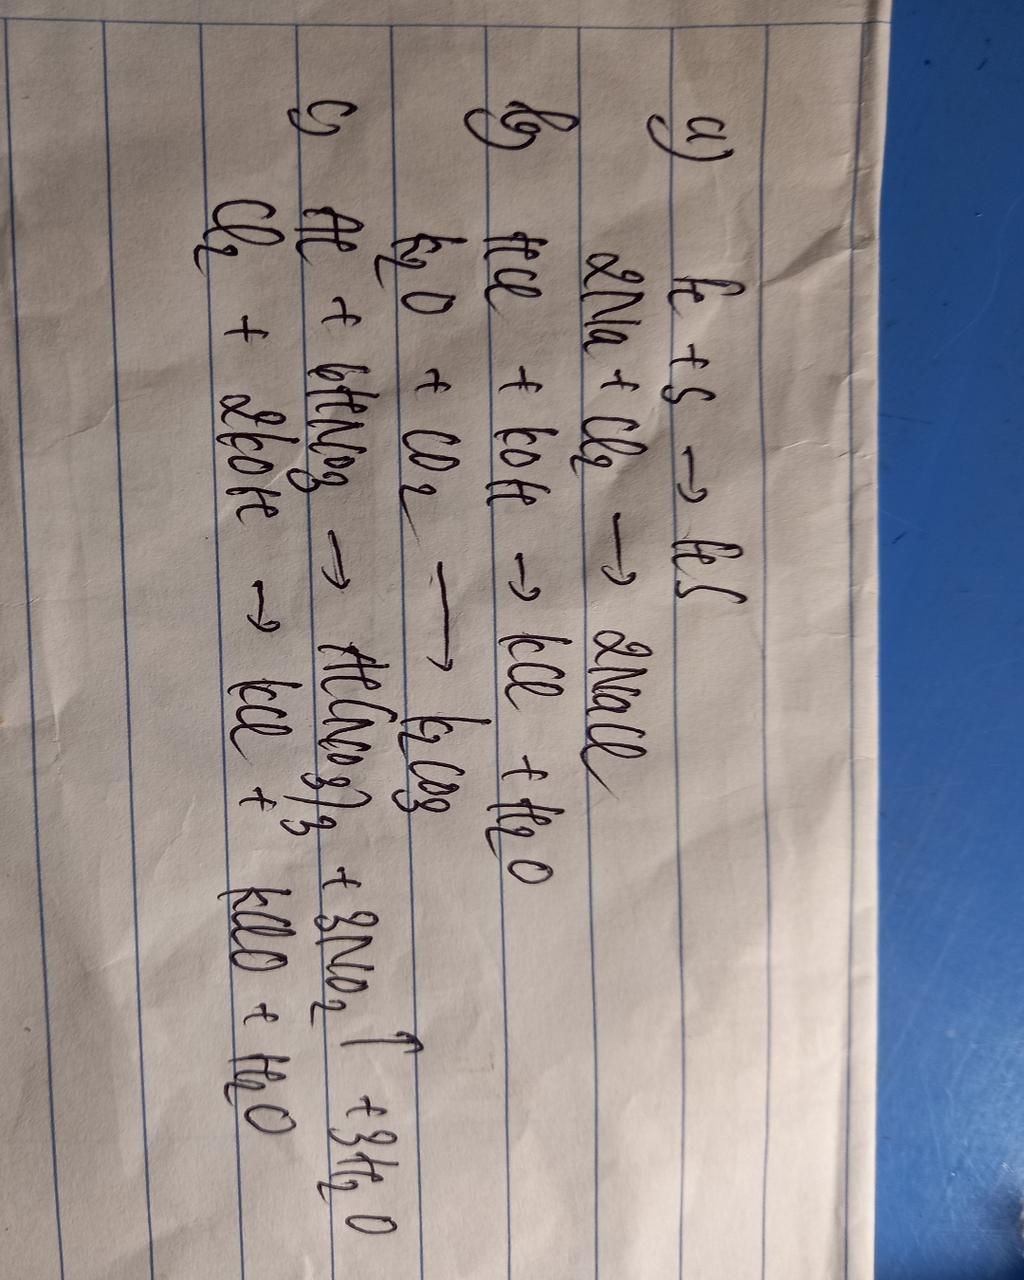 a) Fe + S → FeS
2Na + Cl₂ → 2NaCl
b) HCl + KOH → KCl + H₂O
K₂O + CO₂ → K₂CO₃
c) Al + 6HNO₃ → Al(NO₃)₃ + 3NO₂ ↑ + 3H₂O
Cl₂ + 2KOH → KCl + KClO + H₂O